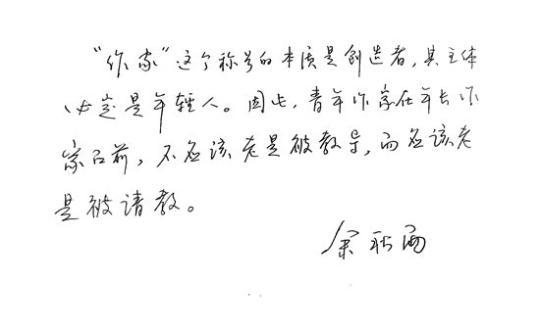 “作家”这个称号的本质是创造者，其主体
必定是年轻人。因此，青年作家在年长作
家面前，不应该老是被教导，而应该老
是被请教。
余秋雨